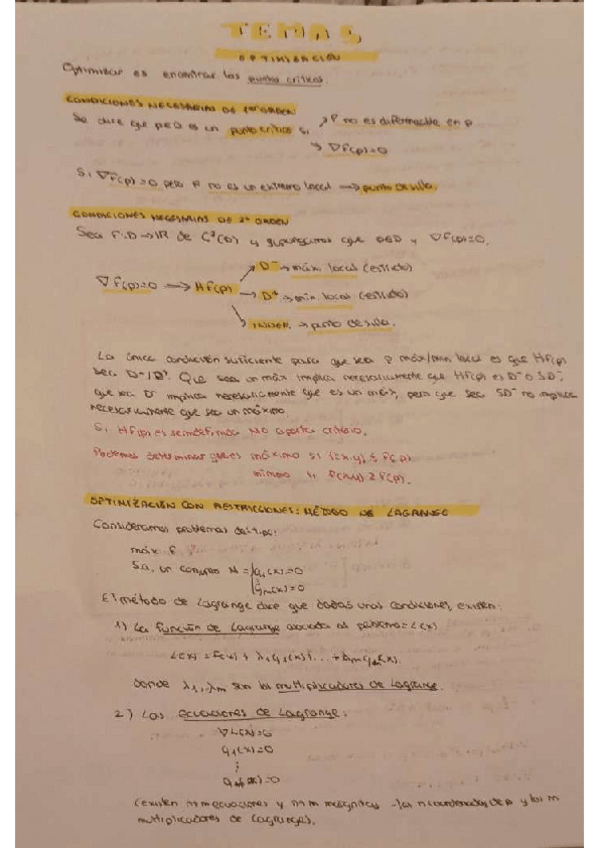 TEMA 5
OPTIMIZACIÓN
Optimizar es encontrar los puntos críticos.
CONDICIONES NECESARIAS DE 1er ORDEN
Se dice que p∈D es un punto crítico si → F no es diferenciable en p
→ ∇F(p)=0
Si ∇F(p)=0 pero p no es un extremo local → punto de silla.
CONDICIONES NECESARIAS DE 2º ORDEN
Sea F:D→ℝ de C²(D) y supongamos que p∈D y ∇F(p)=0.
D⁻ → máx local (estricto)
∇F(p)=0 → HF(p) → D⁺ → mín local (estricto)
→ punto de silla.
La única condición suficiente para que sea p máx/mín local es que HF(p)
sea D⁻/D⁺. Que sea un máx implica necesariamente que HF(p) es D⁻ o SD⁻,
que sea D⁻ implica necesariamente que es un máx, pero que sea SD⁻ no implica
necesariamente que sea un máximo.
Si HF(p) es semidefinida NO aporta criterio.
Podemos determinar que es máximo si F(x,y) ≤ F(p)
mínimo si F(x,y) ≥ F(p).
OPTIMIZACIÓN CON RESTRICCIONES: MÉTODO DE LAGRANGE
Consideramos problemas del tipo:
máx F
S.a. un conjunto M = g₁(x)=0
gₘ(x)=0
El método de Lagrange dice que dadas unas condiciones, existen:
1) La función de Lagrange asociada al problema = L(x)
L(x) = F(x) + λ₁g₁(x) + ... + λₘgₘ(x).
donde λ₁, λₘ son los multiplicadores de Lagrange.
2) Las ecuaciones de Lagrange:
∇L(x)=0
g₁(x)=0
⋮
gₘ(x)=0
(existen n+m ecuaciones y n+m incógnitas - las n coordenadas de p y los m
multiplicadores de Lagrange).